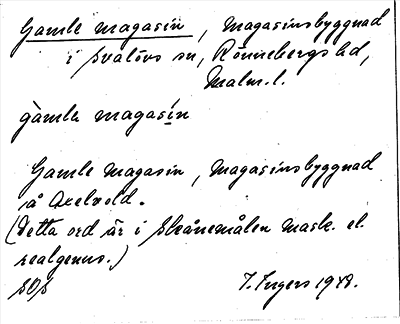 Gamle magasin, Magasinsbyggnad
i Svalövs sn, Rönnebergs hd,
Malm. l.
gàmlə magasín
Gamle Magasin, Magasinsbyggnad
å Axelvold.
(Detta ord är i Skånemålen mask. el.
realgenus.)
SOS
I. Ingers 1948.